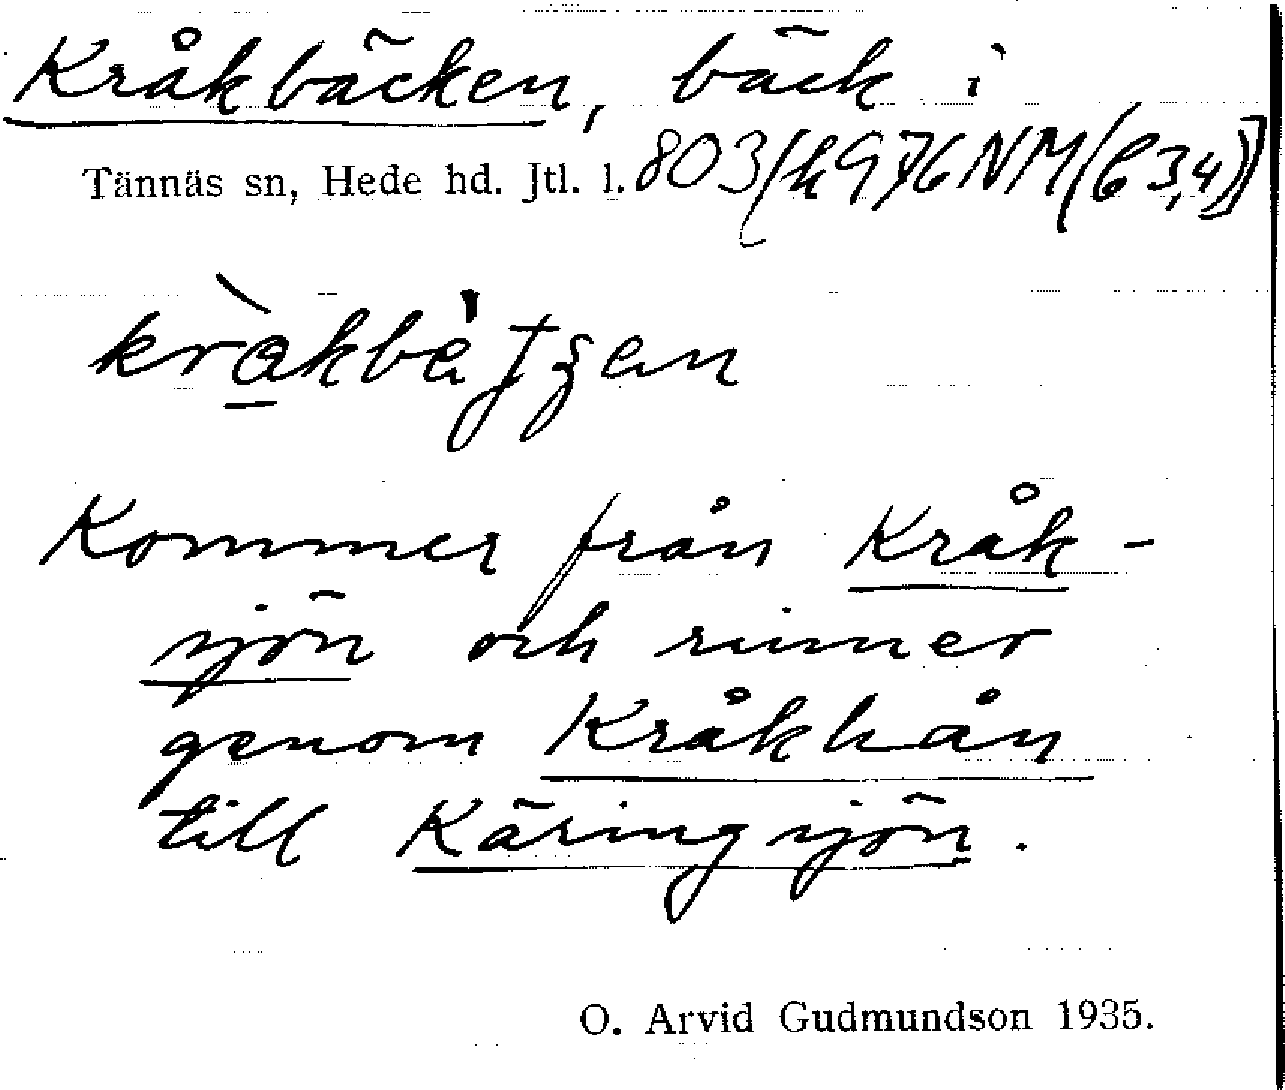 Kråkbäcken, bäck i
Tännäs sn, Hede hd. Jtl. l. 803
Kommer från Kråk-
sjön och rinner
genom Kråkhån
till Käringsjön.
O. Arvid Gudmundson 1935.